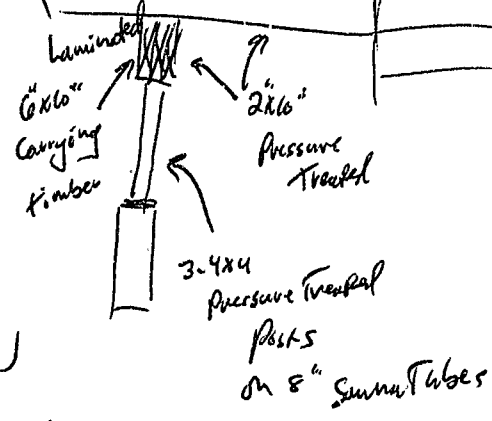 Laminated
6"x10"
Carrying
timber
2"x10"
Pressure
Treated
3-4x4
Pressure Treated
Posts
on 8" SaunaTubes